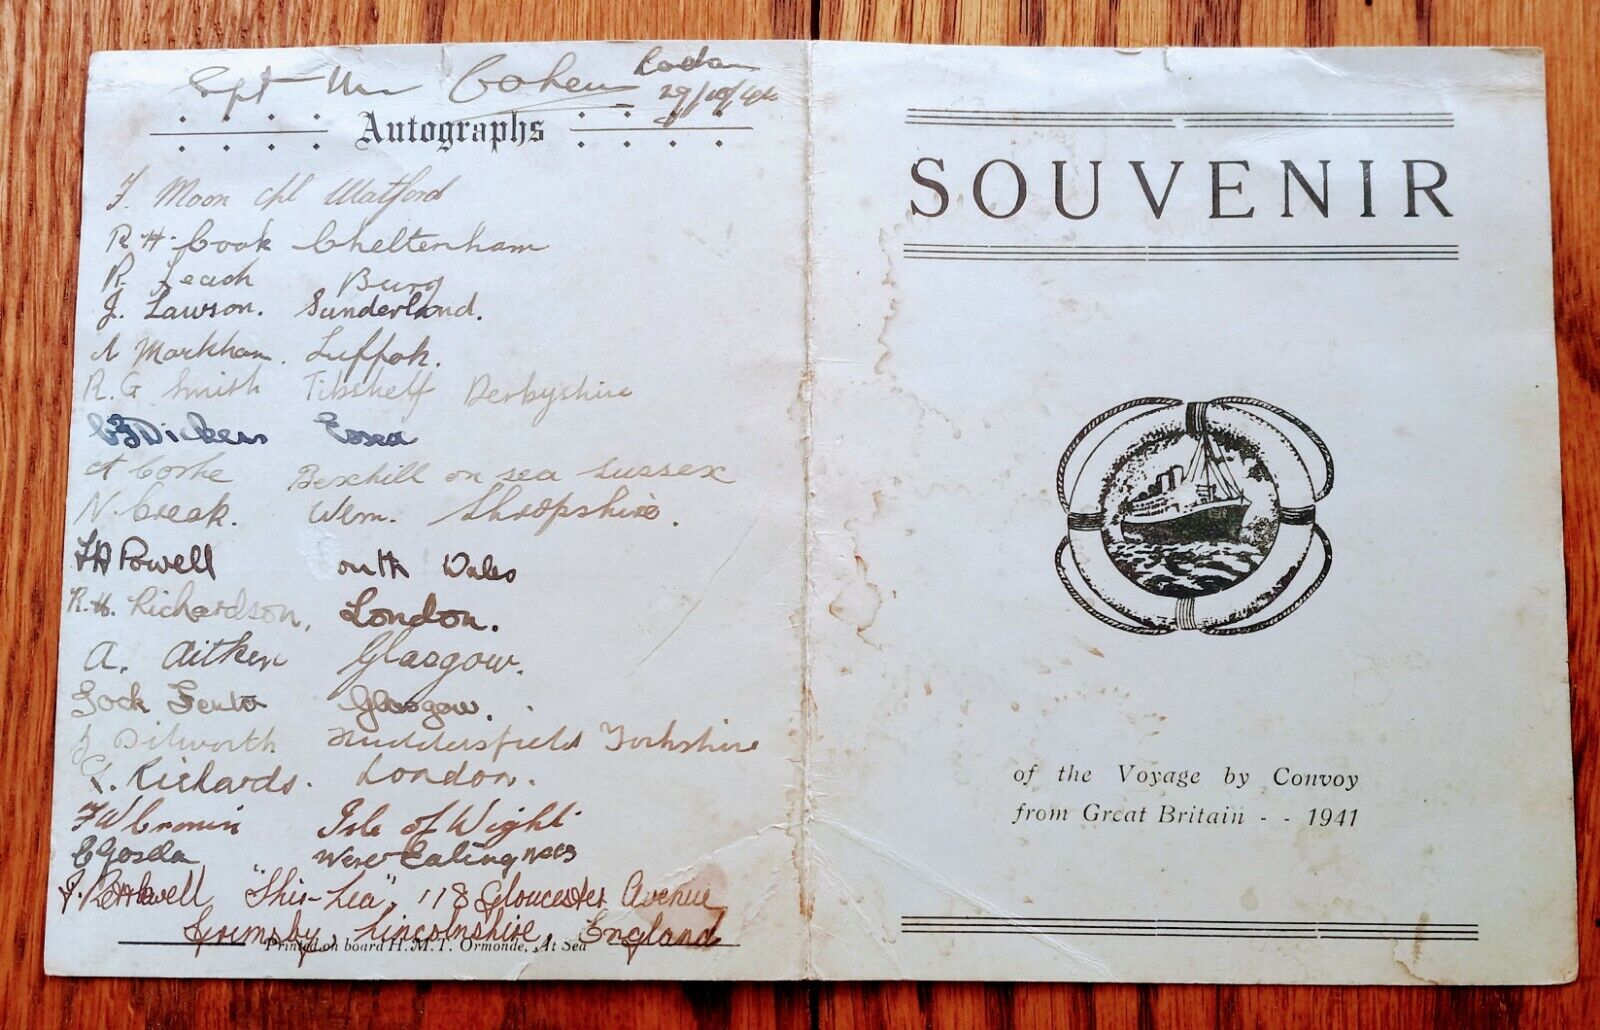 Cohen
29/10/42
Autographs
F. Moon Cpl Watford
R. H. Cook Cheltenham
R. Leach Bury
J. Lawson. Sunderland.
A Markham. Suffok.
R. G Smith Tibshelf Derbyshire
Dickens Essex
A Bexhill on sea Sussex
N. Creak. Wem. Shropshire.
Powell outh Wales
R. H. Richardson, London.
A. Aitken Glasgow.
Jock Fenton Glasgow.
Dilworth Huddersfield Yorkshire
Richards. London.
F W Cronin Isle of Wight
C West Ealing
Rethwell "Shir-Lea", 118 Gloucester Avenue
Grimsby, Lincolnshire, England
Printed on board H.M.T. Ormonde, At Sea
SOUVENIR
of the Voyage by Convoy
from Great Britain - - 1941